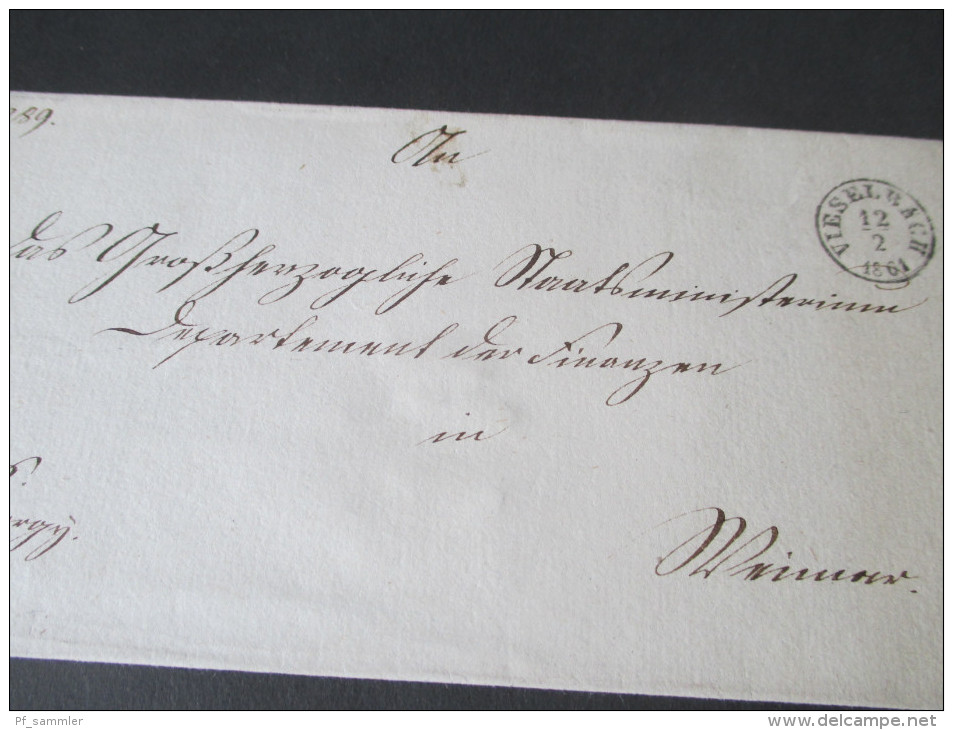 189.
An
VIESELBACH
12
2
1861
das Großherzogliche Staatsministerium
Departement der Finanzen
in
Weimar.
Pf_sammler
www.delcampe.net